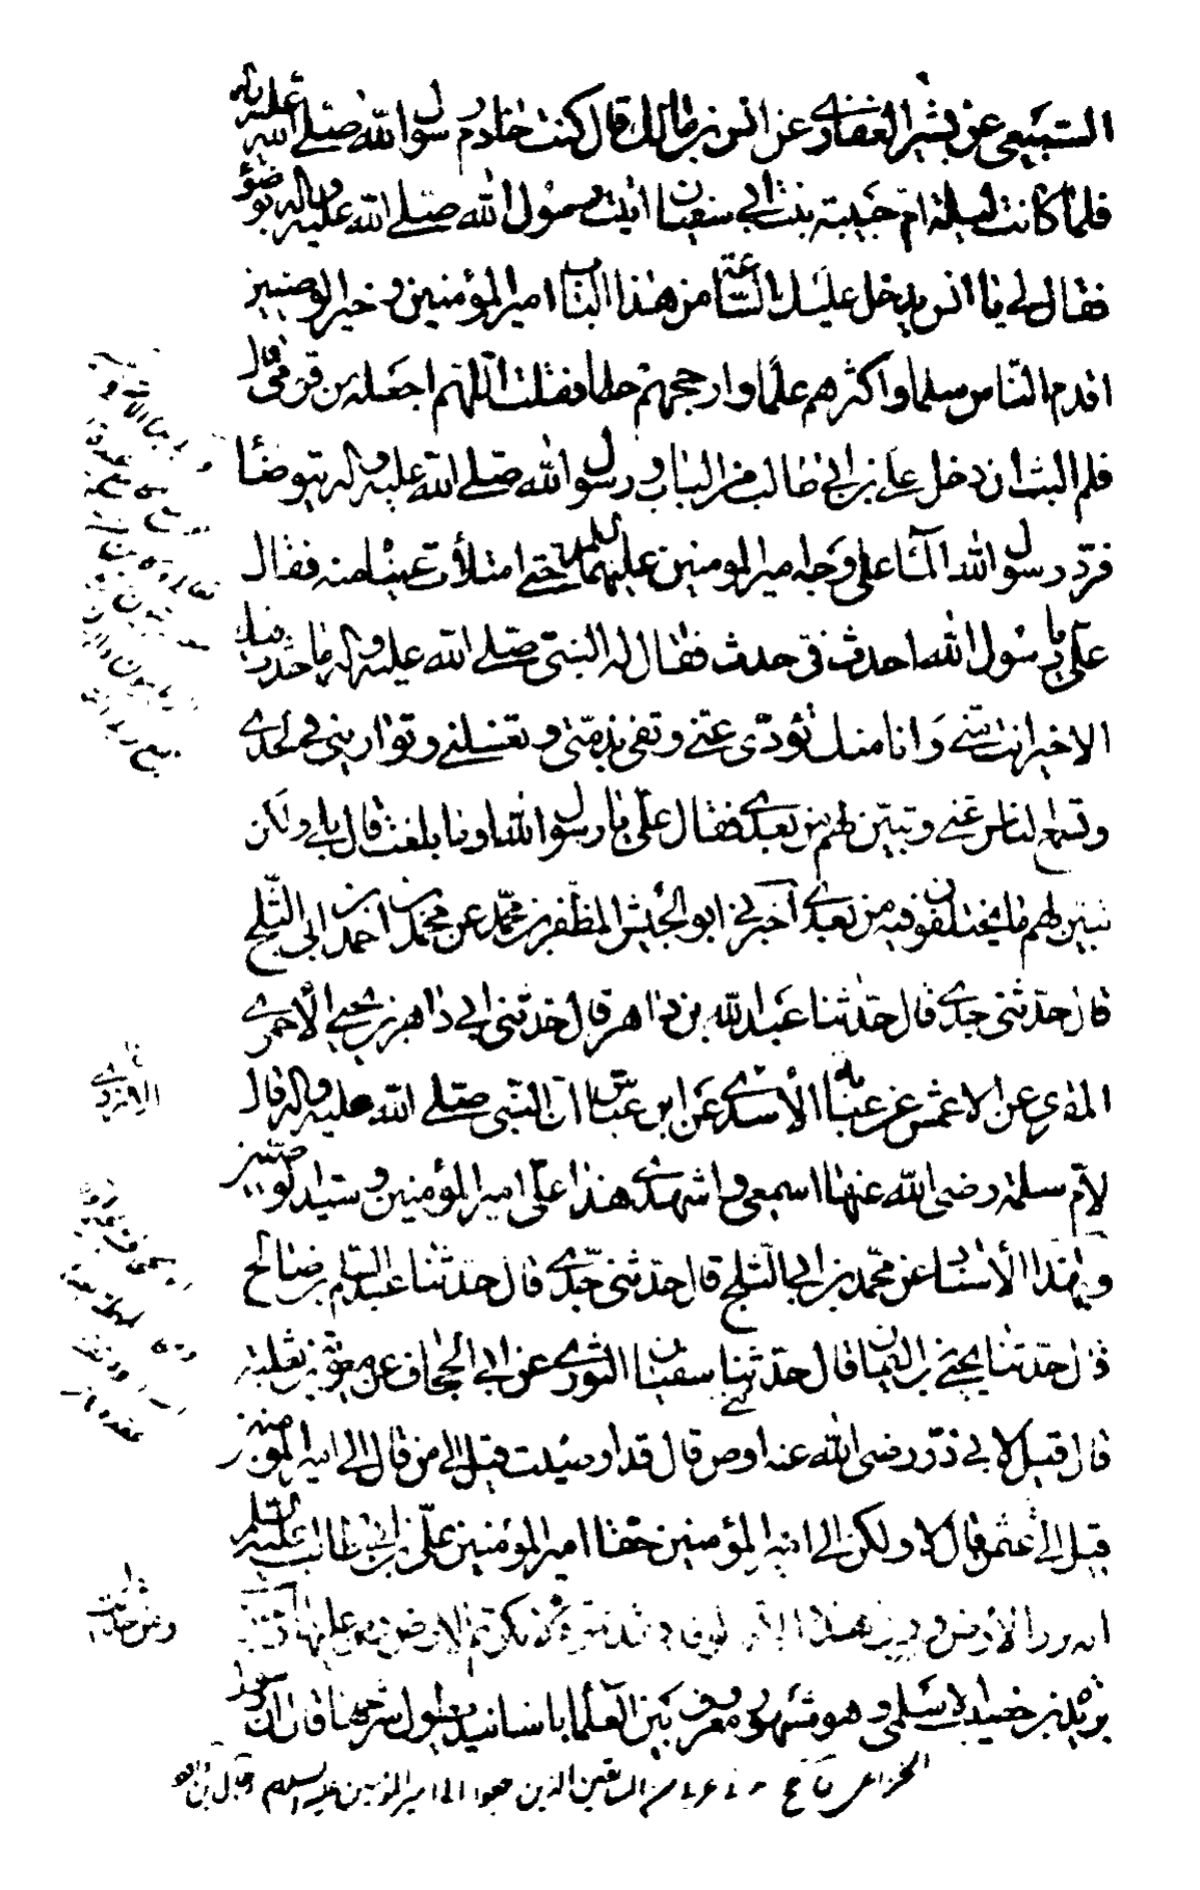 السبيعي عن بشير الغفاري عن انس بن مالك قال كنت خادم رسول الله صلى الله عليه واله
فلما كانت ليلة ام حبيبة بنت ابي سفيان اتيت رسول الله صلى الله عليه واله بوضوء
فقال لي يا انس يدخل عليك الساعة من هذا الباب امير المؤمنين وخير الوصيين
اقدم الناس سلما واكثرهم علما وارجحهم حلما فقلت اللهم اجعله من قومي قال
فلم البث ان دخل علي بن ابي طالب من الباب ورسول الله صلى الله عليه واله يتوضأ
فرد رسول الله الماء على وجه امير المومنين عليهما السلم حتى امتلأت عيناه منه فقال
علي يا رسول الله احدث في حدث فقال له النبي صلى الله عليه واله ما حدث فيك
الا خير انت مني وانا منك تؤدي عني وتفي بذمتي وتغسلني وتواريني في لحدي
وتسمع الناس عني وتبين لهم من بعدي فقال علي يا رسول الله اوما بلغت قال بلى ولكن
تبين لهم ما يختلفون فيه من بعدي اخبرني ابو الجيش المظفر بن محمد عن محمد بن احمد بن ابي الثلج
قال حدثني جدي قال حدثنا عبد الله بن داهر قال حدثني ابي داهر بن يحيى الأحمري
المقري عن الاعمش عن عباية الأسدي عن ابن عباس ان النبي صلى الله عليه واله قال
لام سلمة رضي الله عنها اسمعي واشهدي هذا علي امير المؤمنين وسيد الوصيين
وبهذا الأسناد عن محمد بن ابي الثلج قال حدثني جدي قال حدثنا عبد السلام بن صالح
قال حدثنا يحيى بن اليمان قال حدثني سفيان الثوري عن ابي الجحاف عن معوية بن ثعلبة
قال قيل لابي ذر رضي الله عنه اوص قال قد اوصيت قيل الى من قال الى امير المؤمنين
قيل الى عثمن قال لا ولكن الى امير المؤمنين حقا امير المؤمنين علي بن ابي طالب عليه السلم
انه لزر الأرض هذه الأمة لو قد فقدتموه لانكرتم الارض ومن عليها وحديث
بريدة بن خضيب الاسلمي وهو مشهور معروف بين العلماء باسانيد يطول شرحها قال ان رسول
الازدي
وعن حديث
الخزاعي من السابقين الذين رجعوا الى امير المؤمنين عليه السلام وقال ابن